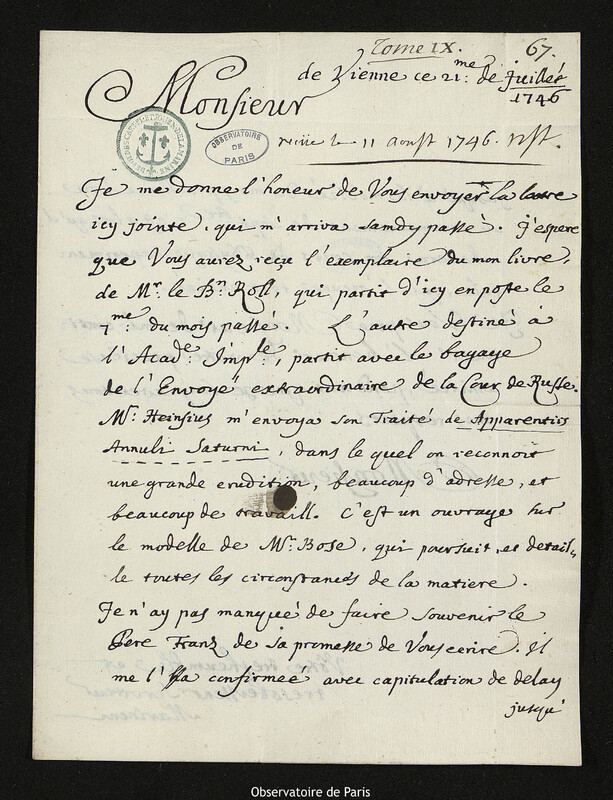 Tome IX. 67.
de Vienne ce 21:me de Juillet
1746
Monsieur
OBSERVATOIRE DE PARIS
le 11 aoust 1746.
Je me donne l'honeur de Vous envoyer la lettre
icy jointe, qui m'arriva samdy passè. J'espere
que Vous aurez reçu l'exemplaire du mon livre,
de Mr. le Bn. Roll, qui partit d'icy en poste le
7me. du mois passé. L'autre destiné a
l'Acade. Imple., partit avec le bagage
de l'Envoyé extraordinaire de la Cour de Russe.
Mr. Heinsius m'envoya son Traité de Apparentiis
Annuli Saturni, dans le quel on reconnoit
une grande erudition, beaucoup d'adresse, et
beaucoup de travaill. C'est un ouvrage sur
le modelle de Mr. Bose, qui poursuit, et detail,,
le toutes les circonstances de la matiere.
Je n'ay pas manqueé de faire souvenir le
Pere Franz de sa promesse de Vous ecrire. Il
me l'a confirmeé avec capitulation de delay
jusqu'
Observatoire de Paris